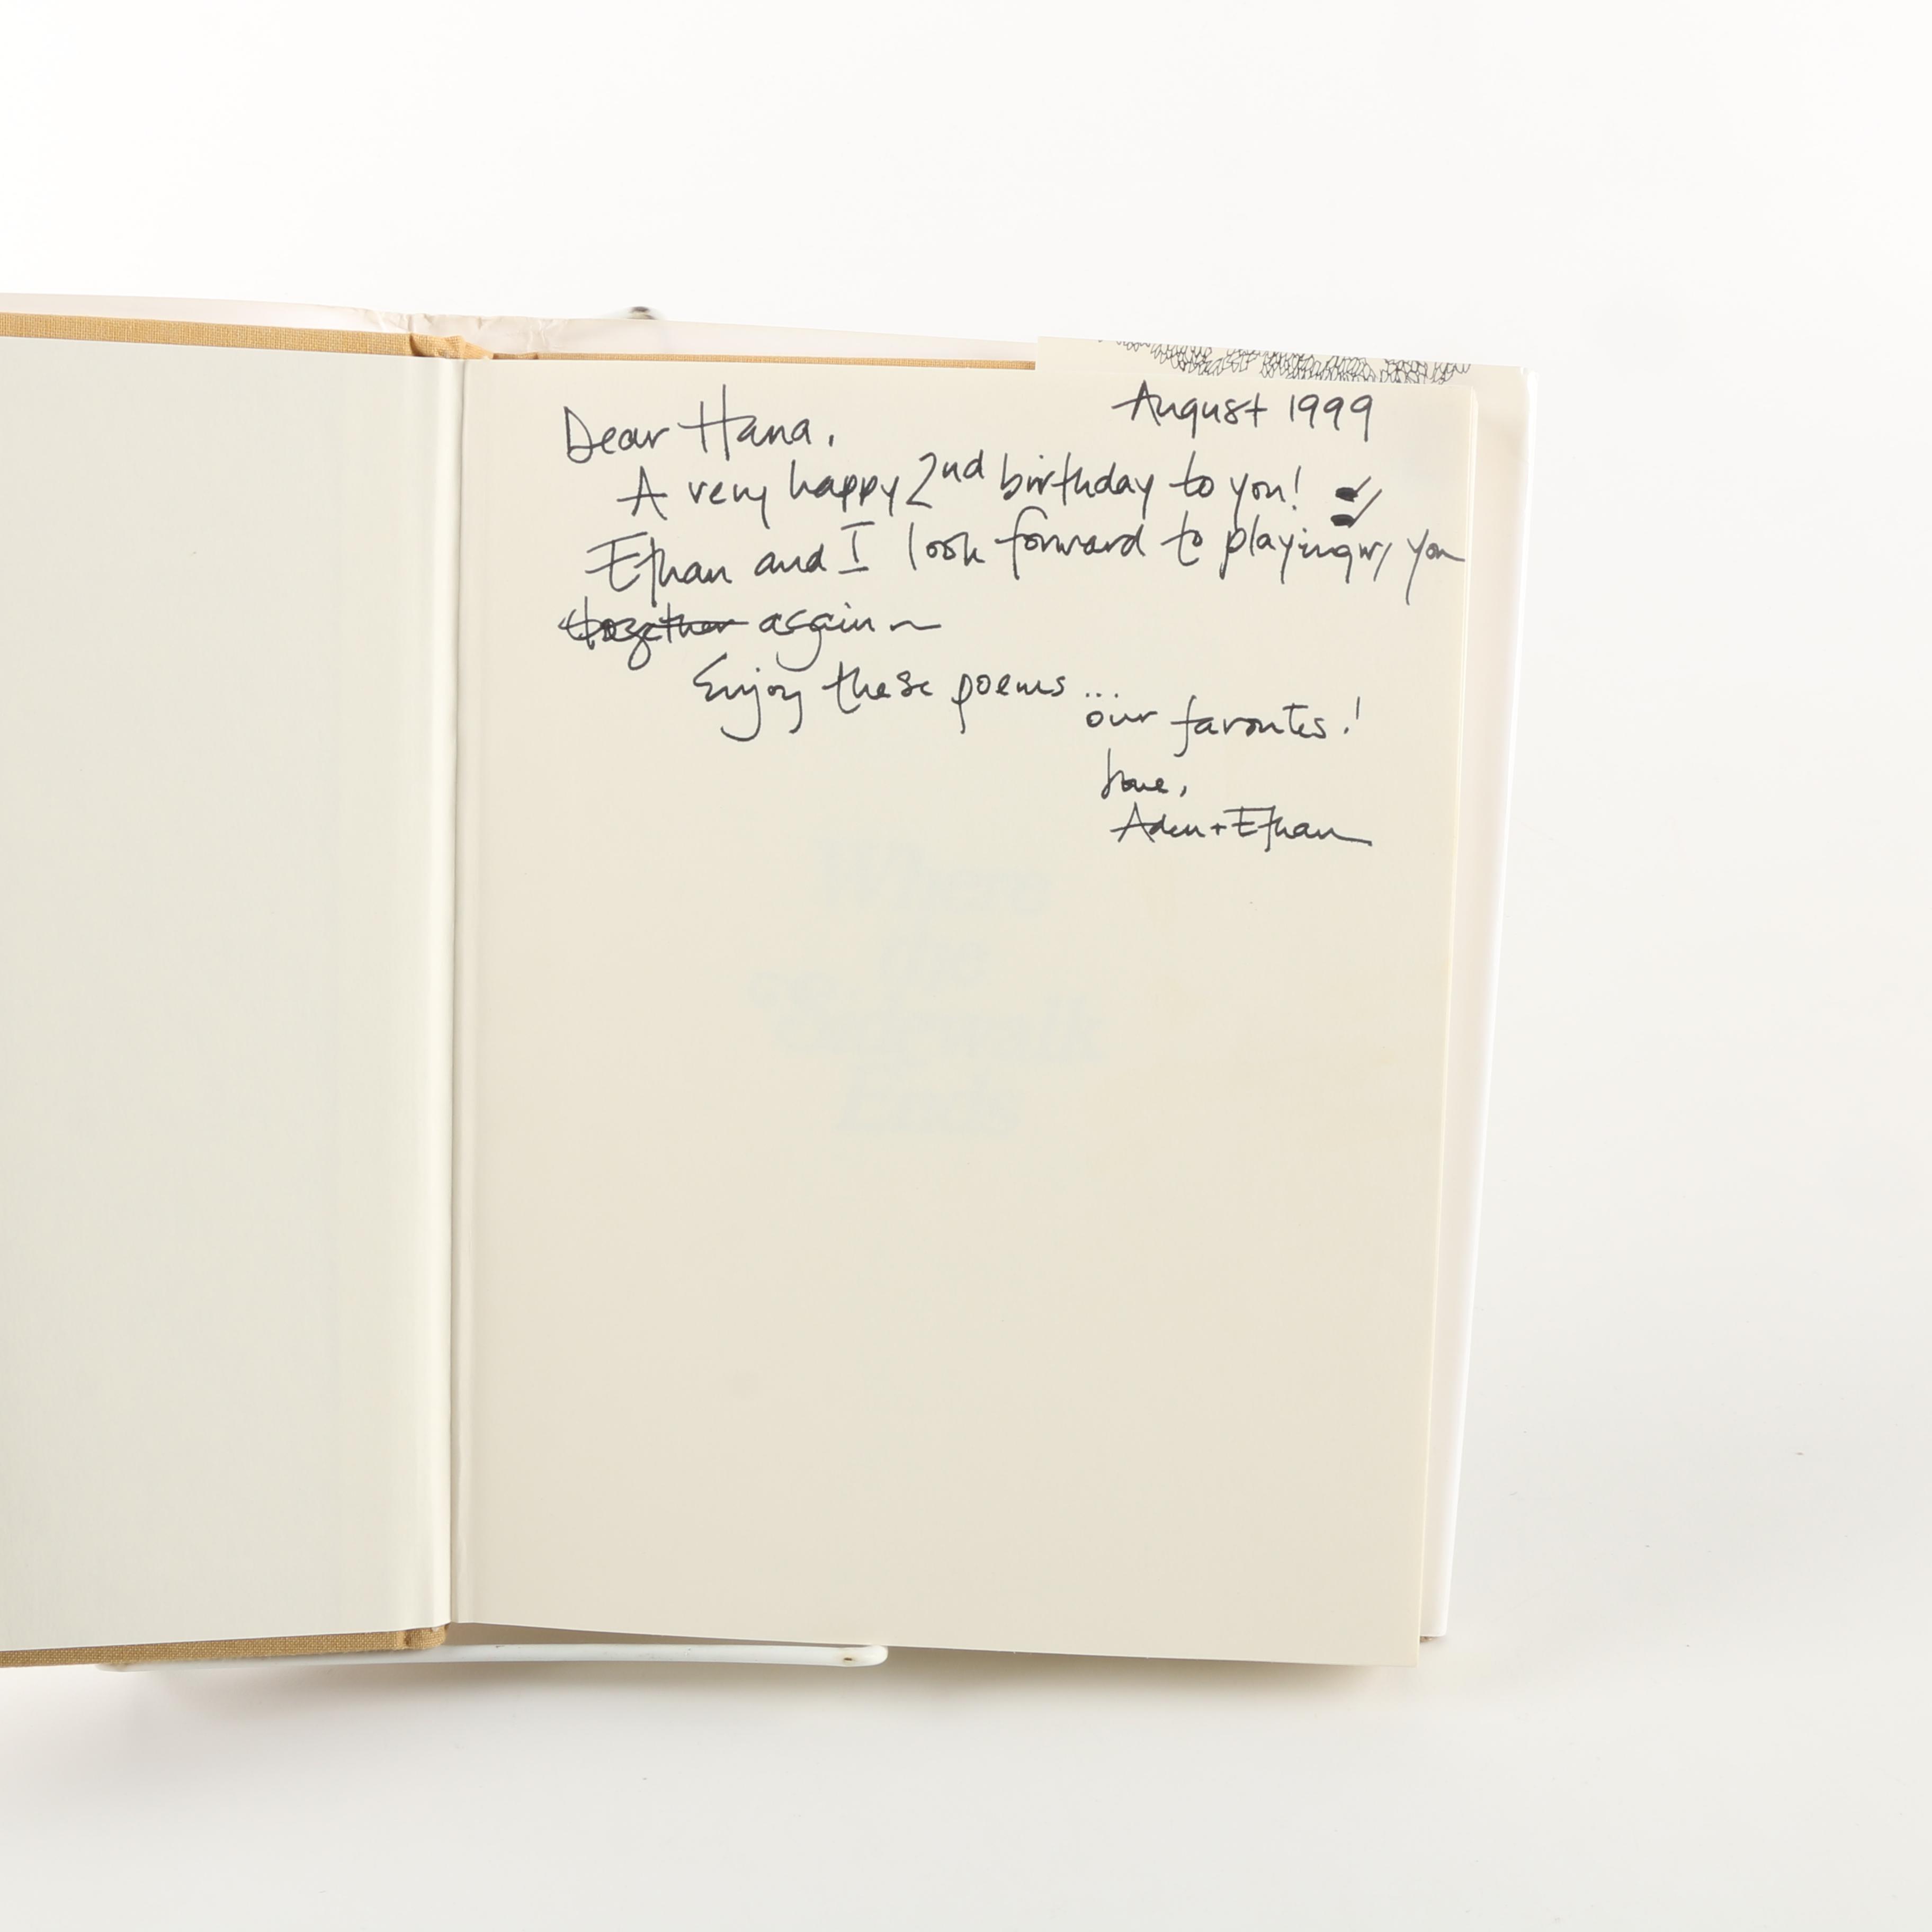 August 1999
Dear Hana,
A very happy 2nd birthday to you!
Ethan and I look forward to playing w/ you
together again ~
Enjoy these poems ...
our favorites!
Love,
Aden + Ethan
Where
the
Sidewalk
Ends